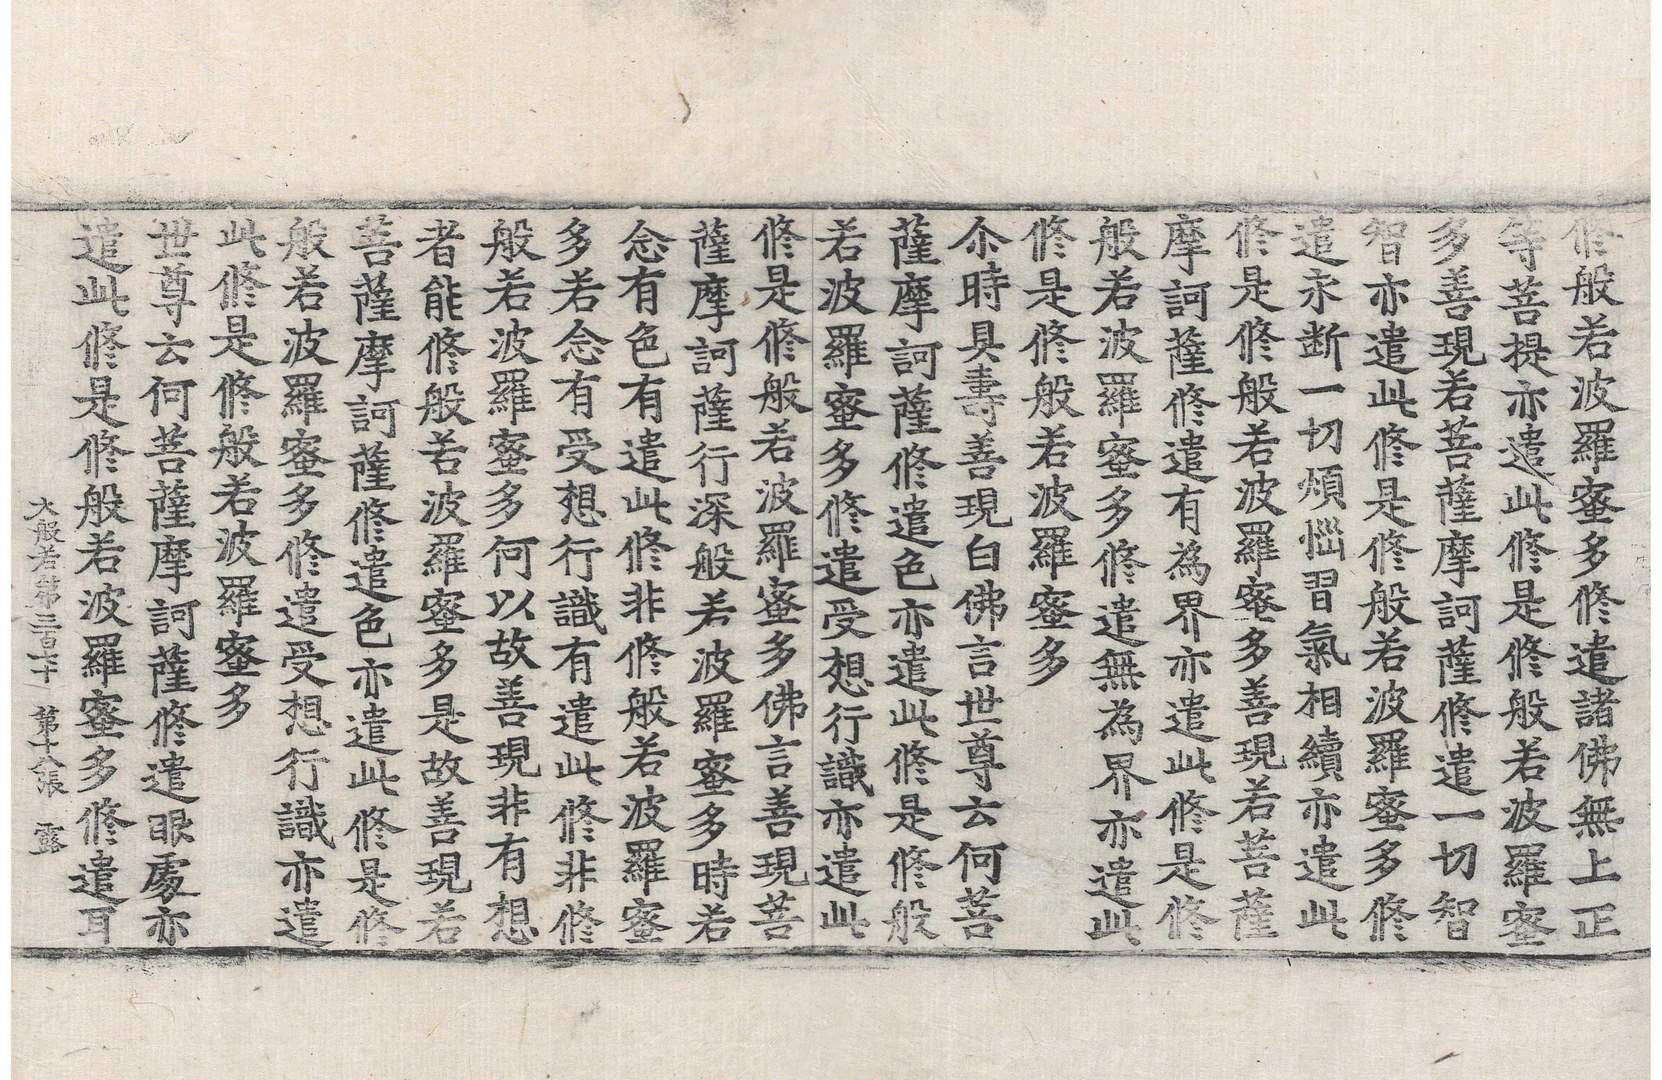 修般若波羅蜜多修遣諸佛無上正
等菩提亦遣此修是修般若波羅蜜
多善現若菩薩摩訶薩修遣一切智
智亦遣此修是修般若波羅蜜多修
遣永断一切煩惱習氣相續亦遣此
修是修般若波羅蜜多善現若菩薩
摩訶薩修遣有為界亦遣此修是修
般若波羅蜜多修遣無為界亦遣此
修是修般若波羅蜜多
尒時具壽善現白佛言世尊云何菩
薩摩訶薩修遣色亦遣此修是修般
若波羅蜜多修遣受想行識亦遣此
修是修般若波羅蜜多佛言善現菩
薩摩訶薩行深般若波羅蜜多時若
念有色有遣此修非修般若波羅蜜
多若念有受想行識有遣此修非修
般若波羅蜜多何以故善現非有想
者能修般若波羅蜜多是故善現若
菩薩摩訶薩修遣色亦遣此修是修
般若波羅蜜多修遣受想行識亦遣
此修是修般若波羅蜜多
世尊云何菩薩摩訶薩修遣眼處亦
遣此修是修般若波羅蜜多修遣耳
大般若第三百六十 第十八張 露